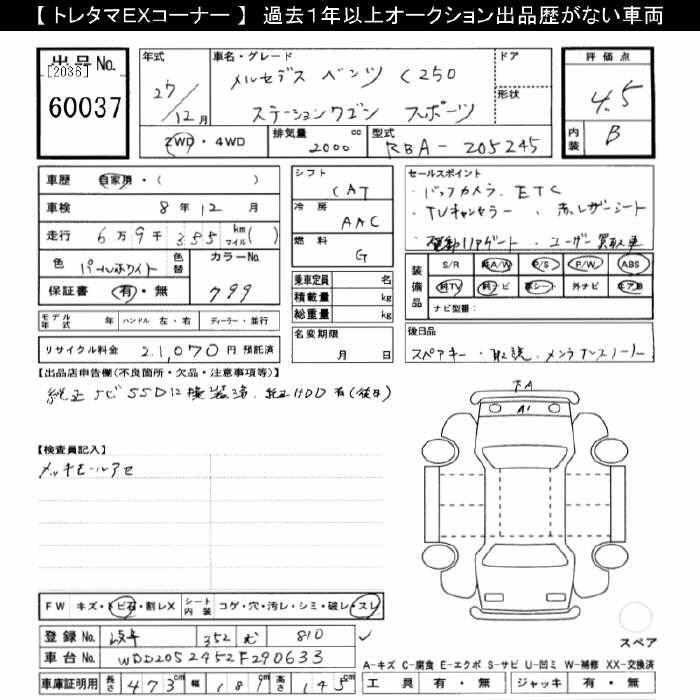 【 トレタマEXコーナー 】 過去1年以上オークション出品歴がない車両
出品No.
[2036]
60037
年式
27/12月
車名・グレード
メルセデス ベンツ C250
ステーションワゴン スポーツ
ドア
形状
評価点
4.5
内装
B
2WD・4WD
排気量 2000 cc
型式 RBA-205245
車歴 自家用・( )
車検 8年12月
走行 6万9千355 km マイル( )
色 パールホワイト 色替
カラーNo. 799
保証書 有・無
モデル年式 年 ハンドル 左・右 ディーラー・並行
リサイクル料金 21,070円 預託済
シフト CAT
冷房 AAC
燃料 G
乗車定員 名
積載量 kg
総重量 kg
名変期限
月 日
セールスポイント
・バックカメラ、ETC
・TVキャンセラー ・赤レザーシート
・電動リアゲート ・ユーザー買取車
装備品
S/R 純A/W P/S P/W ABS
純TV 純ナビ 革シート 外ナビ エアB
ナビ型番:
後日品
スペアキー・取説・メンテナンスノート
【出品店申告欄(不良箇所・欠品・注意事項等)】
純正ナビSSDに換装済、純正HDD有(後日)
【検査員記入】
メッキモールアセ
下A
A1
FW キズ・トビ石・割レX
シート内装 コゲ・穴・汚レ・シミ・破レ・スレ
登録No. 岐阜 352 む 810
車台No. WDD2052452F290633
車庫証明用 長さ 473cm 幅 181cm 高さ 145cm
スペア
A-キズ C-腐食 E-エクボ S-サビ U-凹ミ W-補修 XX-交換済
工具 有・無 ジャッキ 有・無